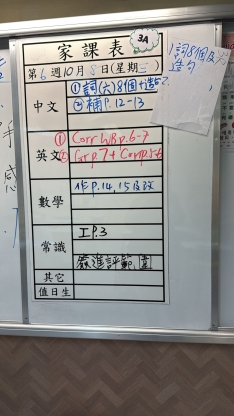 3A
家課表
第6週10月8日(星期三)
中文
①詞(六)8個十造句2
②補P.12-13
英文
① Corr WB p.6-7
② Gr p7 + Comp 5-6
數學
作P.14,15及改
常識
工P.3
簽進評範圍
其它
值日生
1詞8個及
造句